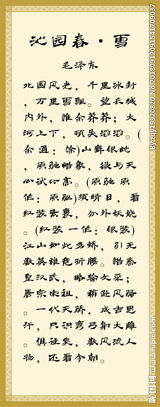 沁园春·雪
毛泽东
北国风光，千里冰封
，万里雪飘。望长城
内外，惟余莽莽；大
河上下，顿失滔滔。（
余通：馀）山舞银蛇
，原驰蜡象，欲与天
公试比高。（原驰 原
作：原驱）须晴日，看
红装素裹，分外妖娆。
（红装 一作：银装）
江山如此多娇，引无
数英雄竞折腰。惜秦
皇汉武，略输文采；
唐宗宋祖，稍逊风骚
。一代天骄，成吉思
汗，只识弯弓射大雕
。俱往矣，数风流人
物，还看今朝。